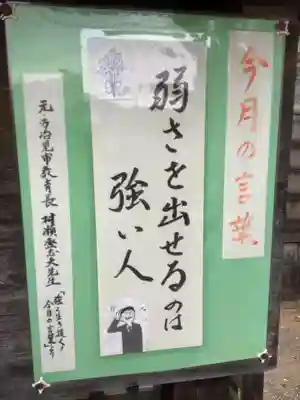 今月の言葉
弱さを出せるのは
強い人
元・多治見市教育長 村瀬登志夫先生
「強く生き抜く
今月の言葉」より